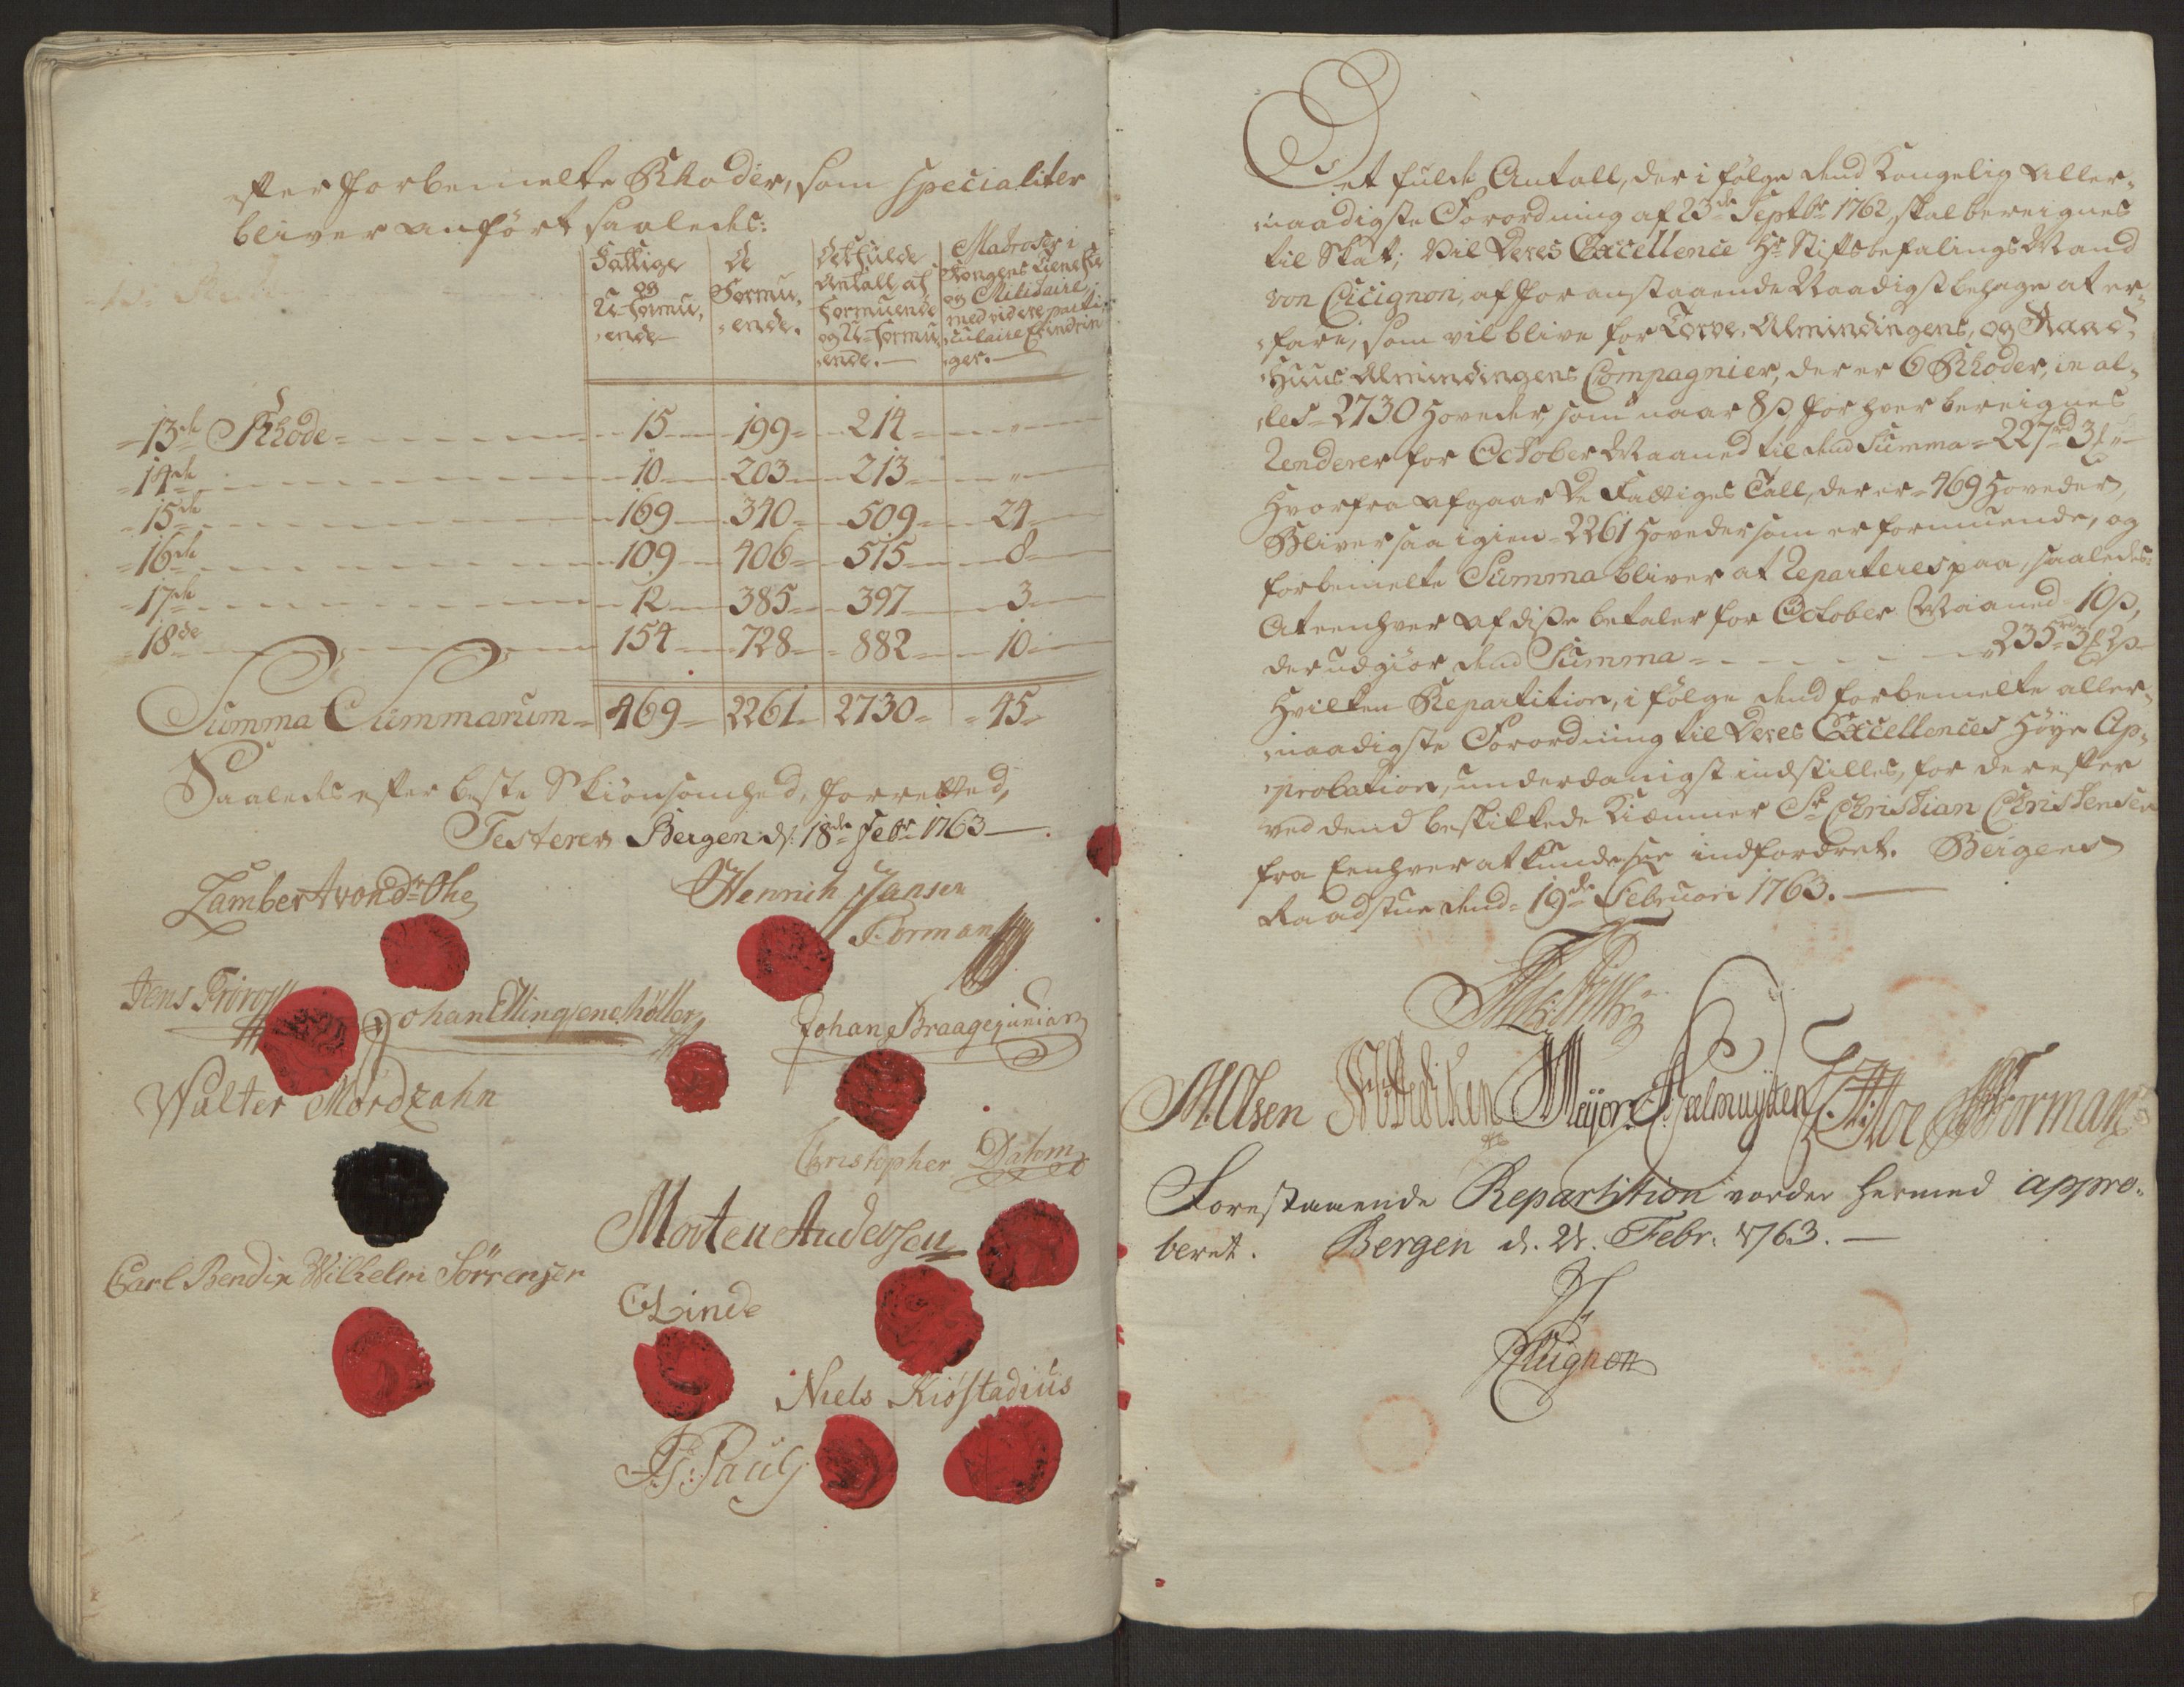 efter forbemelte Rhoder, som specialiter
bliver anført saaledes:
Fattige og U-formu,ende
De Formu,ende.
Det fulde Antall af Formuende og U-formu,ende.
Madroser i Kongens Tieneste og Militaire, med videre particulaire Erindringer.
13de Rhode 15 199 214 "
14de 10 203 213 "
15de 169 340 509 24
16de 109 406 515 8
17de 12 385 397 3
18de 154 728 882 10
Summa Summarum 469 2261 2730 45
Saaledes efter beste Skiønsomhed, forretted,
Testerer Bergen d: 18de Febr 1763
Lambert von dr Ohe
Henrich Jansen
Forman
Jens
Johan Ellingsen
Johan Braage junior
Walter Mordzahn
Christopher Dahm
Morten Andersen
Carl Bendix Wilhelm Sörrensen
C Linde
Niels Kiøstadius
Paul
Det fulde Antall, der i følge dend Kongelig Aller,
naadigste Forordning af 23de Septbr 1762, skal bereignes
til Skat; Vil Deres Excellence Hr Stiftsbefalings Mand
von Cicignon, af foranstaaende Naadigst behage at er,
fare, som vil blive for Torve, Almindingens, og Raad,
Huus Almindingens Compagnier, der er 6 Rhoder, in al,
les 2730 Hoveder, som naar 8 ß for hver bereignes
Renderer for October Maaned til dend Summa 227 rd 3 ℔ "
Hvorfra afgaar De Fattiges Tall, der er 469 Hoveder,
Bliver saa igien 2261 Hoveder som er formuende, og
forbemelte Summa bliver at Reparteres paa, saaledes:
At eenhver af disse betaler for October Maaned 10 ß,
der udgiør dend Summa 235 rd 3 ℔ 2 ß
Hvilken Repartition, i følge dend forbemelte aller,
naadigste Forordning til Deres Excellences Høye Ap,
probation, underdanigst indstilles, for derefter
ved dend beskikkede Kiæmner Sr Christian Christensen
fra Eenhver at kunde see indfordret. Bergens
Raadstue dend 19de Februari 1763.
M. Olsen Fredriken Meyer Geelmuyden Forman
Forestaaende Repartition vorder hermed appro,
beret. Bergen d. 21. Febr. 1763.
Cicignon